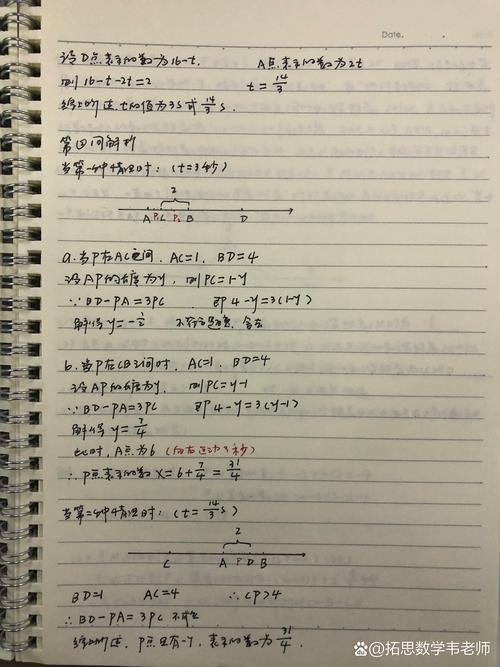 Date.
设D点表示的数为16-t.    A点表示的数为2t
则 16-t-2t=2    t=14/3
综上所述, t的值为3s或14/3s.
第四问解析
当第一种情况时: (t=3秒)
2
A P₁ C P₂ B D
a.当P在AC之间, AC=1, BD=4
设AP的长度为y, 则PC=1-y
∵BD-PA=3PC    即4-y=3(1-y)
解得y=-1/2    不符合题意, 舍去
b.当P在CB之间时, AC=1, BD=4
设AP的长度为y, 则PC=y-1
∵BD-PA=3PC    即4-y=3(y-1)
解得y=7/4
此时, A点为6 (向右运动3秒)
∴P点表示的数X=6+7/4=31/4
当第二种情况时: (t=14/3s)
2
C A P D B
BD=1    AC=4    ∴CP>4
∴BD-PA=3PC 不可能
综上所述, P点只有一个, 表示的数为31/4.
@拓思数学韦老师